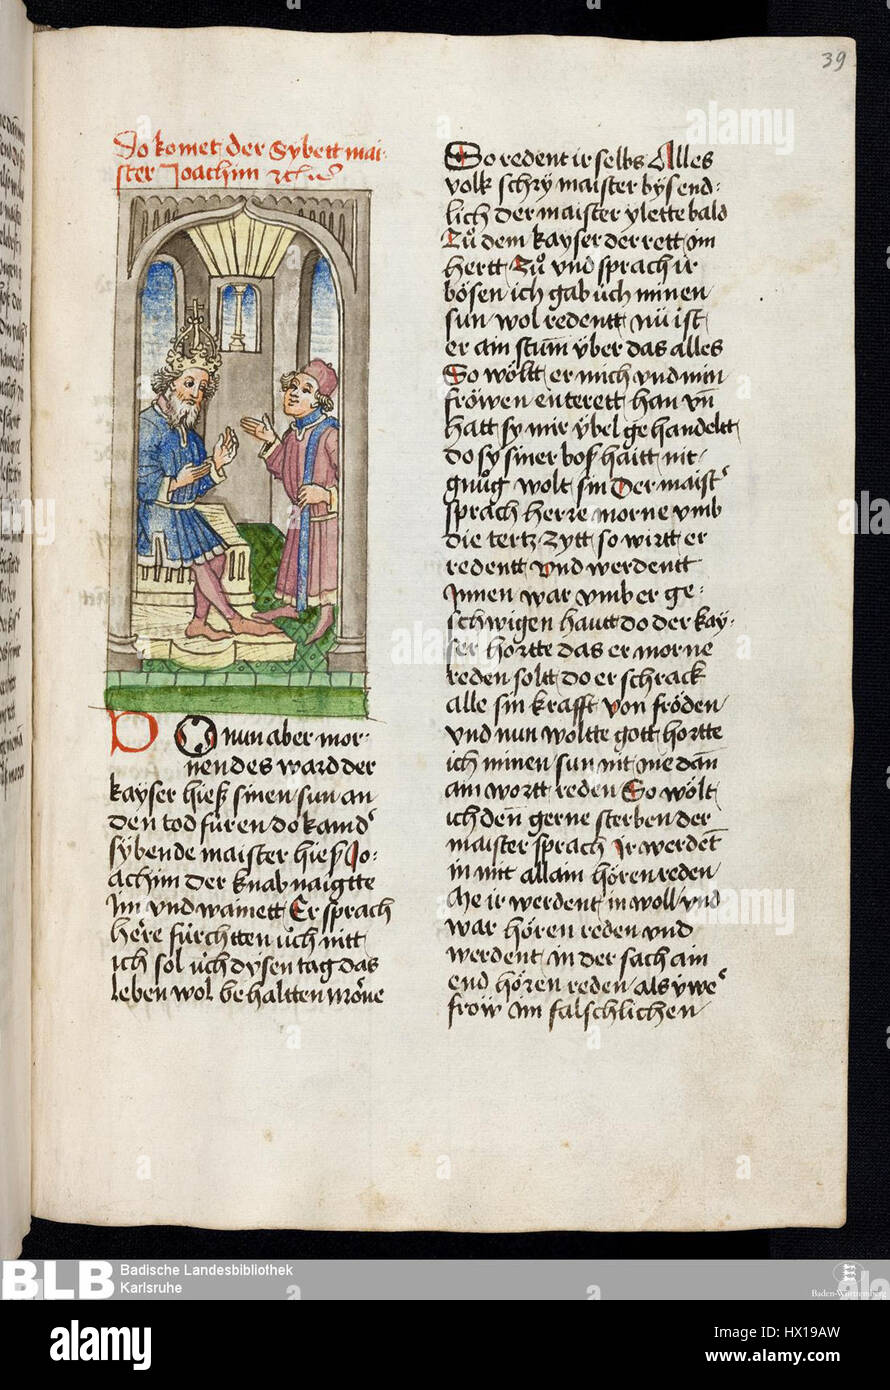 39
Do komet der Sybett mai-
ster Joachim
DO nun aber mor-
nendes ward der
kayser hieß sinen sun an
den tod füren do kam dˢ
sybende maister hieß Jo-
achim der knab naigtte
im vnd wainett Er sprach
here fürchtten üch nitt
ich sol üch dysen tag das
leben wol behaltten möne
So redent ir selbs Alles
volk schry maister bysend-
lich der maister ylette bald
Zů dem kayser der rett im
hertt Zů vnd sprach ir
bösen ich gab üch minen
sun wol redentt nü ist
er ain stum über das alles
So wöltt er mich vnd min
fröwen enterett han vn̄
hatt sy mir ÿbel gehandeltt
do sy siner boßhaitt nit
gnůg wolt sin Der maistˢ
sprach herre morne vmb
die tertz zytt so wirtt er
redentt vnd werdentt
Innen war vmb er ge-
schwigen hautt do der kay-
ser hortte das er morne
reden soltt do erschrack
alle sin krafft von fröden
vnd nun woltte gott hortte
ich minen sun nit me dan̄
ain wortt reden So wölt
ich den̄ gerne sterben der
maister sprach Ir werdet̄
in nitt allain hören reden
Me ir werdent in woll vnd
war hören reden vnd
werdent in der sach ain
end hören reden als üweˢ
fröw im falschlichen
BLB Badische Landesbibliothek
Karlsruhe
Baden-Württemberg
alamy
Image ID: HX19AW
www.alamy.com